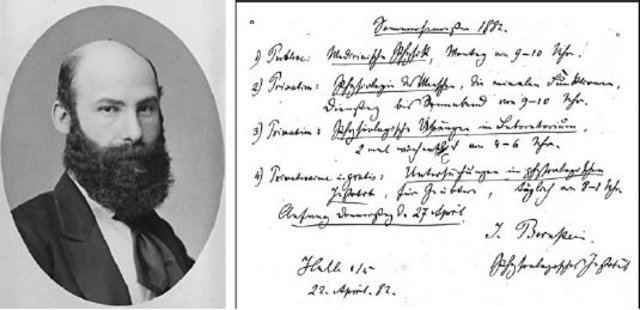 Sommersemester 1882.
1) Public: Medicinische Physik, Montag von 9–10 Uhr.
2) Privatim: Physiologie des Menschen, die animalen Funktionen,
Dienstag bis Sonnabend von 9–10 Uhr.
3) Privatim: Physiologische Übungen im Laboratorium,
2 mal wöchentlich von 4–6 Uhr.
4) Privatissime u. gratis: Untersuchungen im physiologischen
Institut, für Geübtere, täglich von Uhr.
Anfang Donnerstag d. 27 April.
J. Bernstein.
Halle a/S
Physiologisches Institut
22. April. 82.